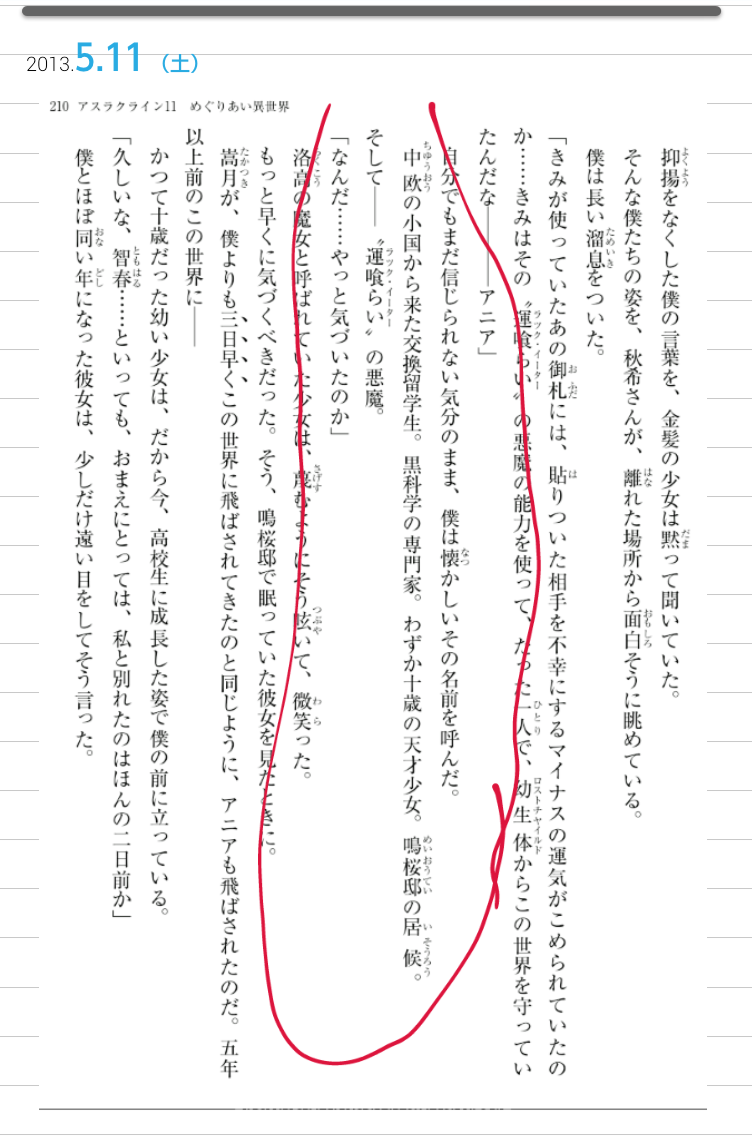 2013.5.11（土）
210 アスラクライン11 めぐりあい異世界
抑揚をなくした僕の言葉を、金髪の少女は黙って聞いていた。
そんな僕たちの姿を、秋希さんが、離れた場所から面白そうに眺めている。
僕は長い溜息をついた。
「きみが使っていたあの御札には、貼りついた相手を不幸にするマイナスの運気がこめられていたの
か……きみはその〝運喰らい〟の悪魔の能力を使って、たった一人で、幼生体からこの世界を守ってい
たんだな――――アニア」
自分でもまだ信じられない気分のまま、僕は懐かしいその名前を呼んだ。
中欧の小国から来た交換留学生。黒科学の専門家。わずか十歳の天才少女。鳴桜邸の居候。
そして――〝運喰らい〟の悪魔。
「なんだ……やっと気づいたのか」
洛高の魔女と呼ばれていた少女は、蔑むようにそう呟いて、微笑った。
もっと早くに気づくべきだった。そう、鳴桜邸で眠っていた彼女を見たときに。
嵩月が、僕よりも三日早くこの世界に飛ばされてきたのと同じように、アニアも飛ばされたのだ。五年
以上前のこの世界に――
かつて十歳だった幼い少女は、だから今、高校生に成長した姿で僕の前に立っている。
「久しいな、智春……といっても、おまえにとっては、私と別れたのはほんの二日前か」
僕とほぼ同い年になった彼女は、少しだけ遠い目をしてそう言った。